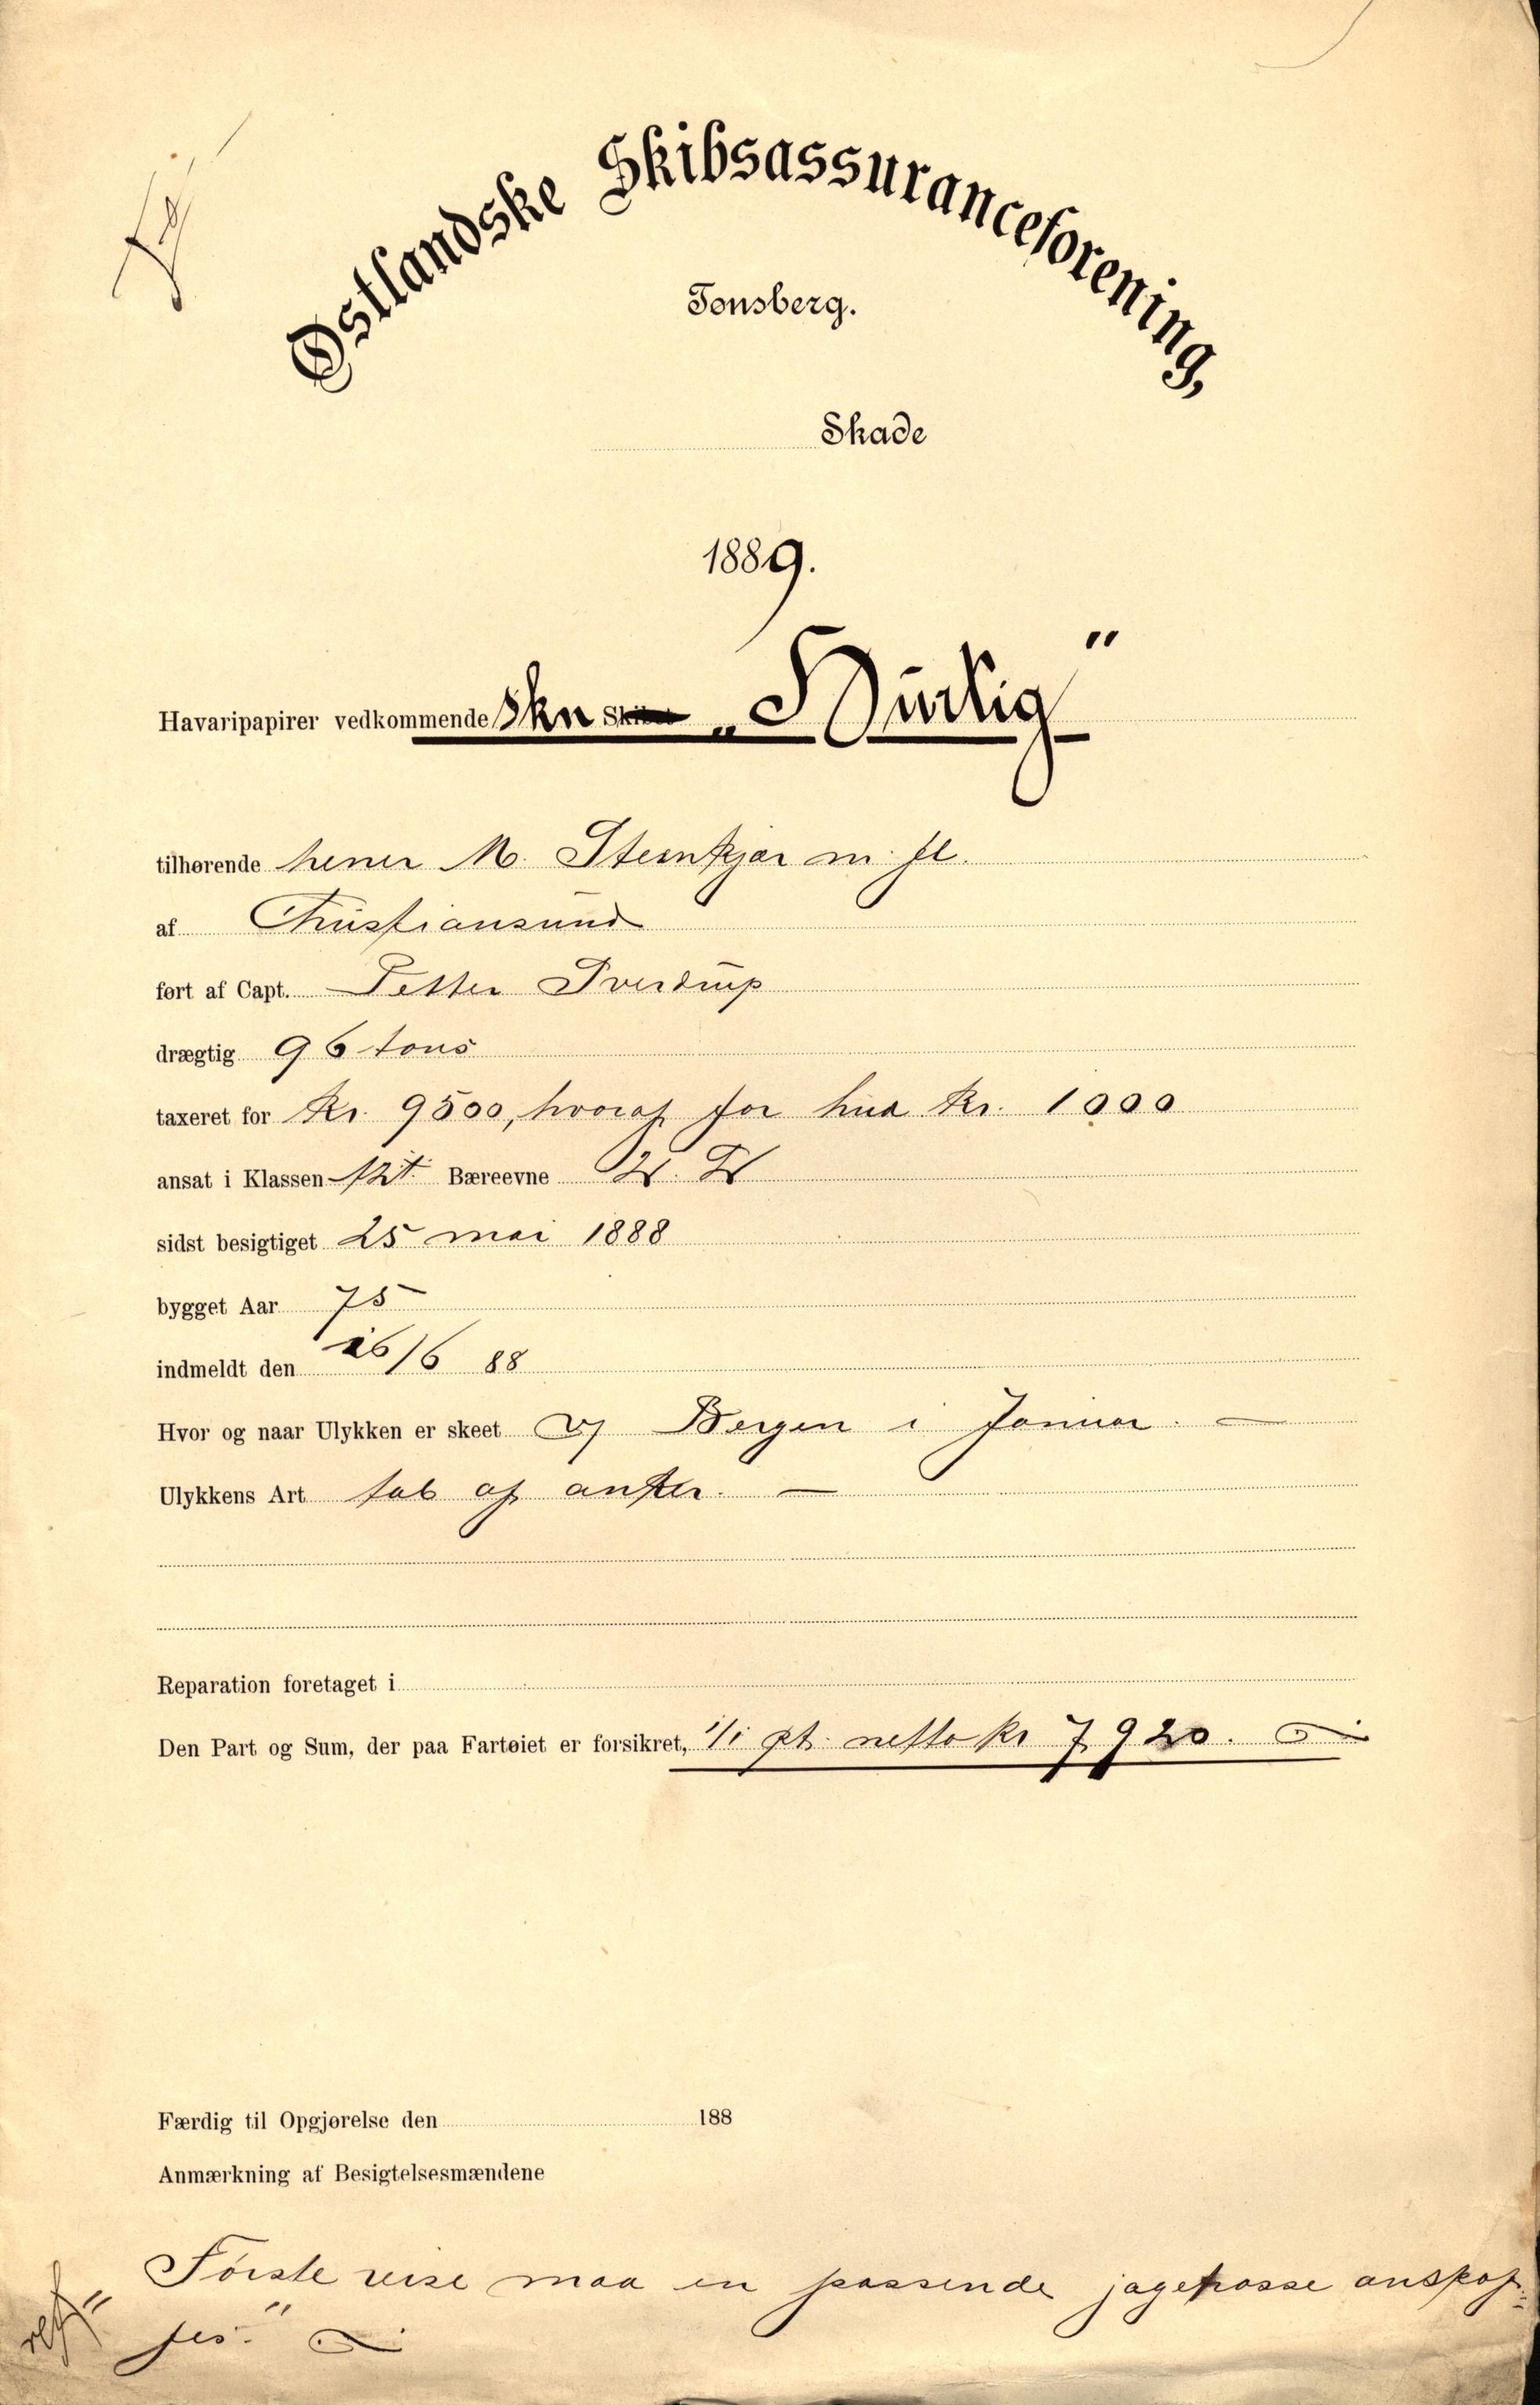 Østlandske Skibsassuranceforening,
Tønsberg.
Skade
1889.
Havaripapirer vedkommende Skn Skibet „Hurtig"
tilhørende herrer M. Steinkjær m. fl.
af Christiansund
ført af Capt. Petter Sverdrup
drægtig 96 tons
taxeret for Kr. 9500, hvoraf for hud Kr. 1000
ansat i Klassen Bæreevne
sidst besigtiget 25 mai 1888
bygget Aar 75
indmeldt den 26/6 88
Hvor og naar Ulykken er skeet v/ Bergen i Januar. —
Ulykkens Art tab af anker. —
Reparation foretaget i
Den Part og Sum, der paa Fartøiet er forsikret, 1/1 pt. netto kr 7920.
Færdig til Opgjørelse den 188
Anmærkning af Besigtelsesmændene
"Første reise maa en passende jagetrosse anskaf=
fes."